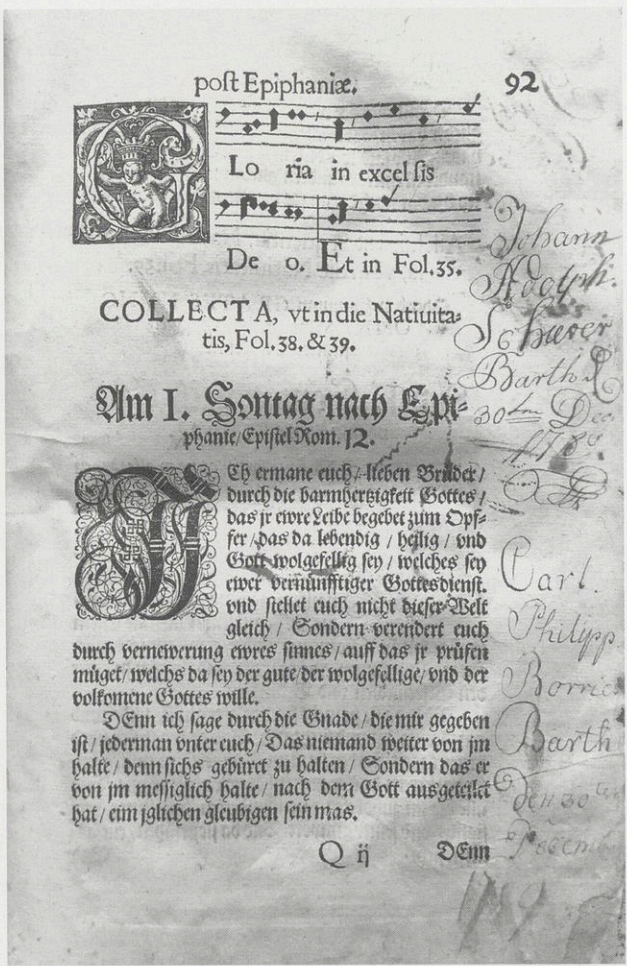 post Epiphaniæ. 92
GLo ria in excel sis
De o. Et in Fol.35.
COLLECTA, vt in die Natiuita-
tis, Fol.38.&39.
Am I. Sontag nach Epi-
phanie/Epistel Rom. 12.
ICh ermane euch/lieben Brüder/
durch die barmhertzigkeit Gottes/
das jr ewre Leibe begebet zum Opf-
fer/das da lebendig/heilig/vnd
Gott wolgefellig sey/welches sey
ewer vernünfftiger Gottesdienst.
vnd stellet euch nicht dieser Welt
gleich/Sondern verendert euch
durch vernewerung ewres sinnes/auff das jr prüfen
müget/welchs da sey der gute/der wolgefellige/vnd der
volkomene Gottes wille.
DEnn ich sage durch die Gnade/die mir gegeben
ist/jederman vnter euch/Das niemand weiter von jm
halte/denn sichs gebüret zu halten/Sondern das er
von jm messiglich halte/nach dem Gott ausgeteilet
hat/eim jglichen gleubigen sein mas.
Q ij DEnn
Johann
Adolph
Barth
30ten Dec
Carl.
Philipp
Barth
den 30ten